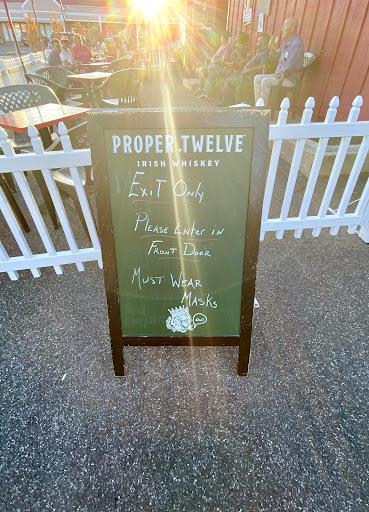 PROPER No. TWELVE
IRISH WHISKEY
EXIT ONLY
PLEASE ENTER IN
FRONT DOOR
MUST WEAR
MASKS